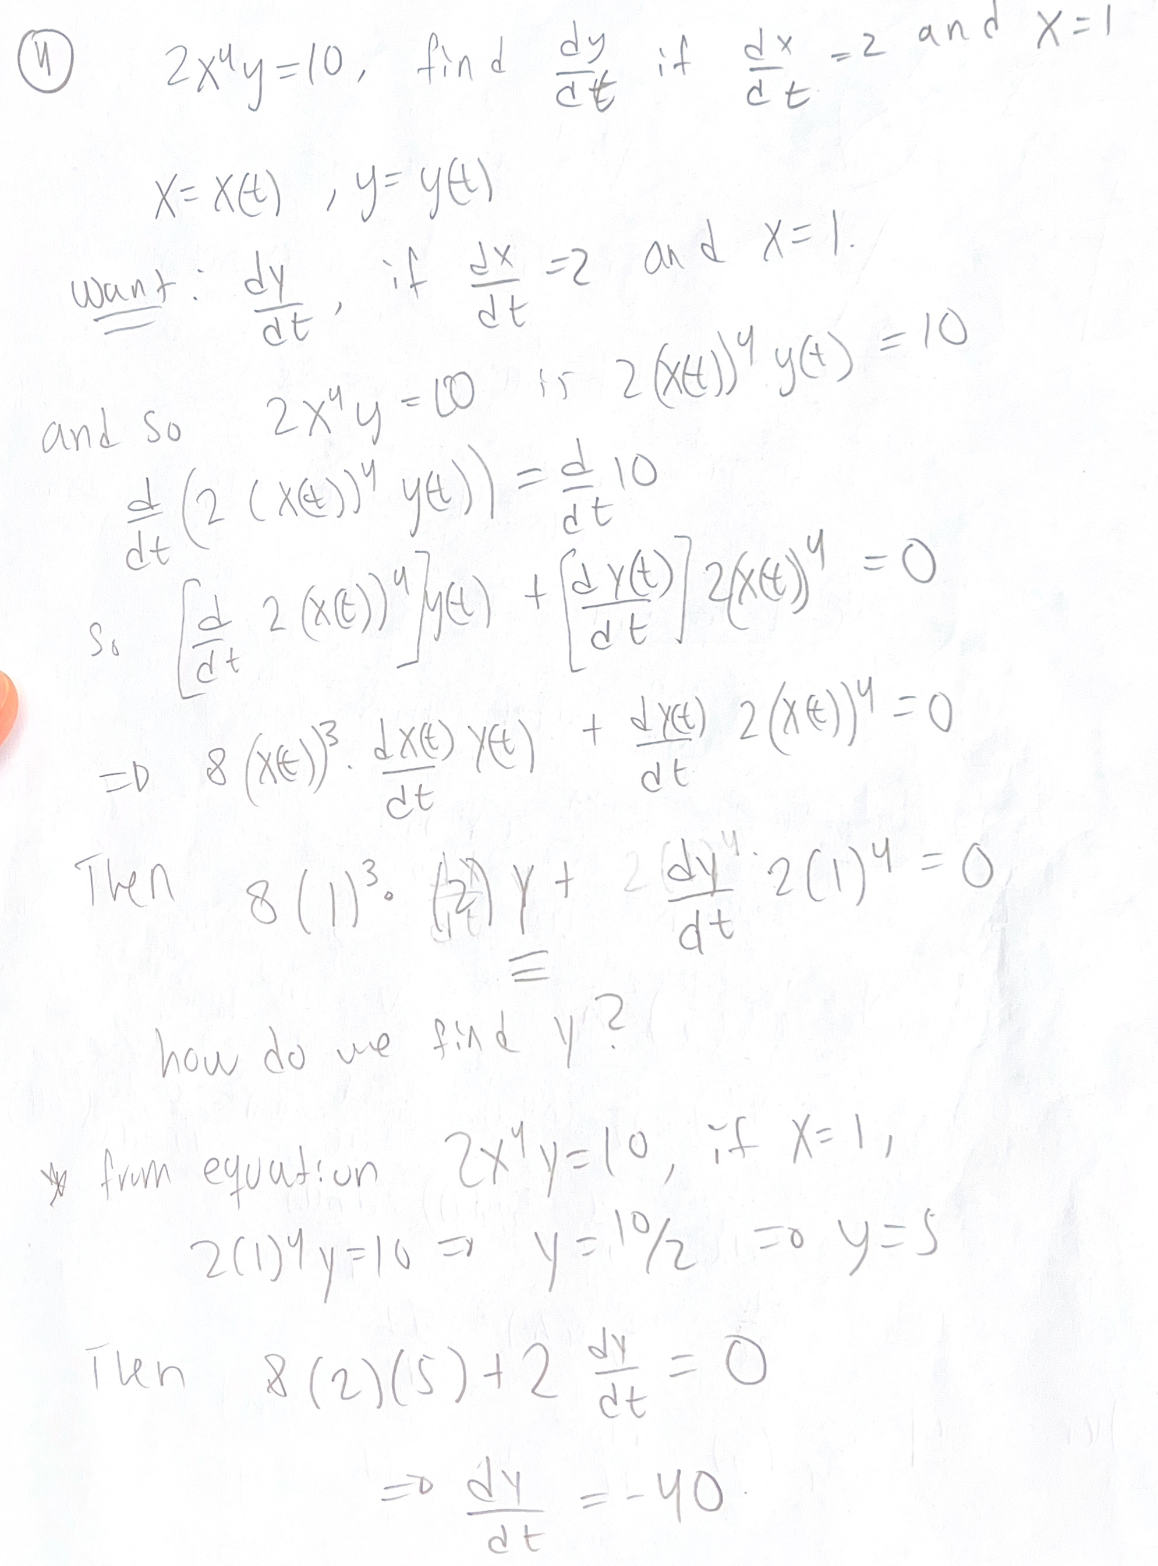 ④ 2x⁴y=10, find dy/dt if dx/dt =2 and x=1
x=x(t) , y=y(t)
Want: dy/dt, if dx/dt =2 and x=1.
and so 2x⁴y=10 is 2(x(t))⁴ y(t) =10
d/dt (2 (x(t))⁴ y(t)) = d/dt 10
So [d/dt 2(x(t))⁴]y(t) + [dy(t)/dt] 2(x(t))⁴ =0
⇒ 8(x(t))³ · dx(t)/dt y(t) + dy(t)/dt 2(x(t))⁴=0
Then 8(1)³ · (2) y + dy/dt · 2(1)⁴ =0
how do we find y?
* from equation 2x⁴y=10, if x=1,
2(1)⁴y=10 ⇒ y=10/2 ⇒ y=5
Then 8(2)(5)+2 dy/dt =0
⇒ dy/dt =-40.